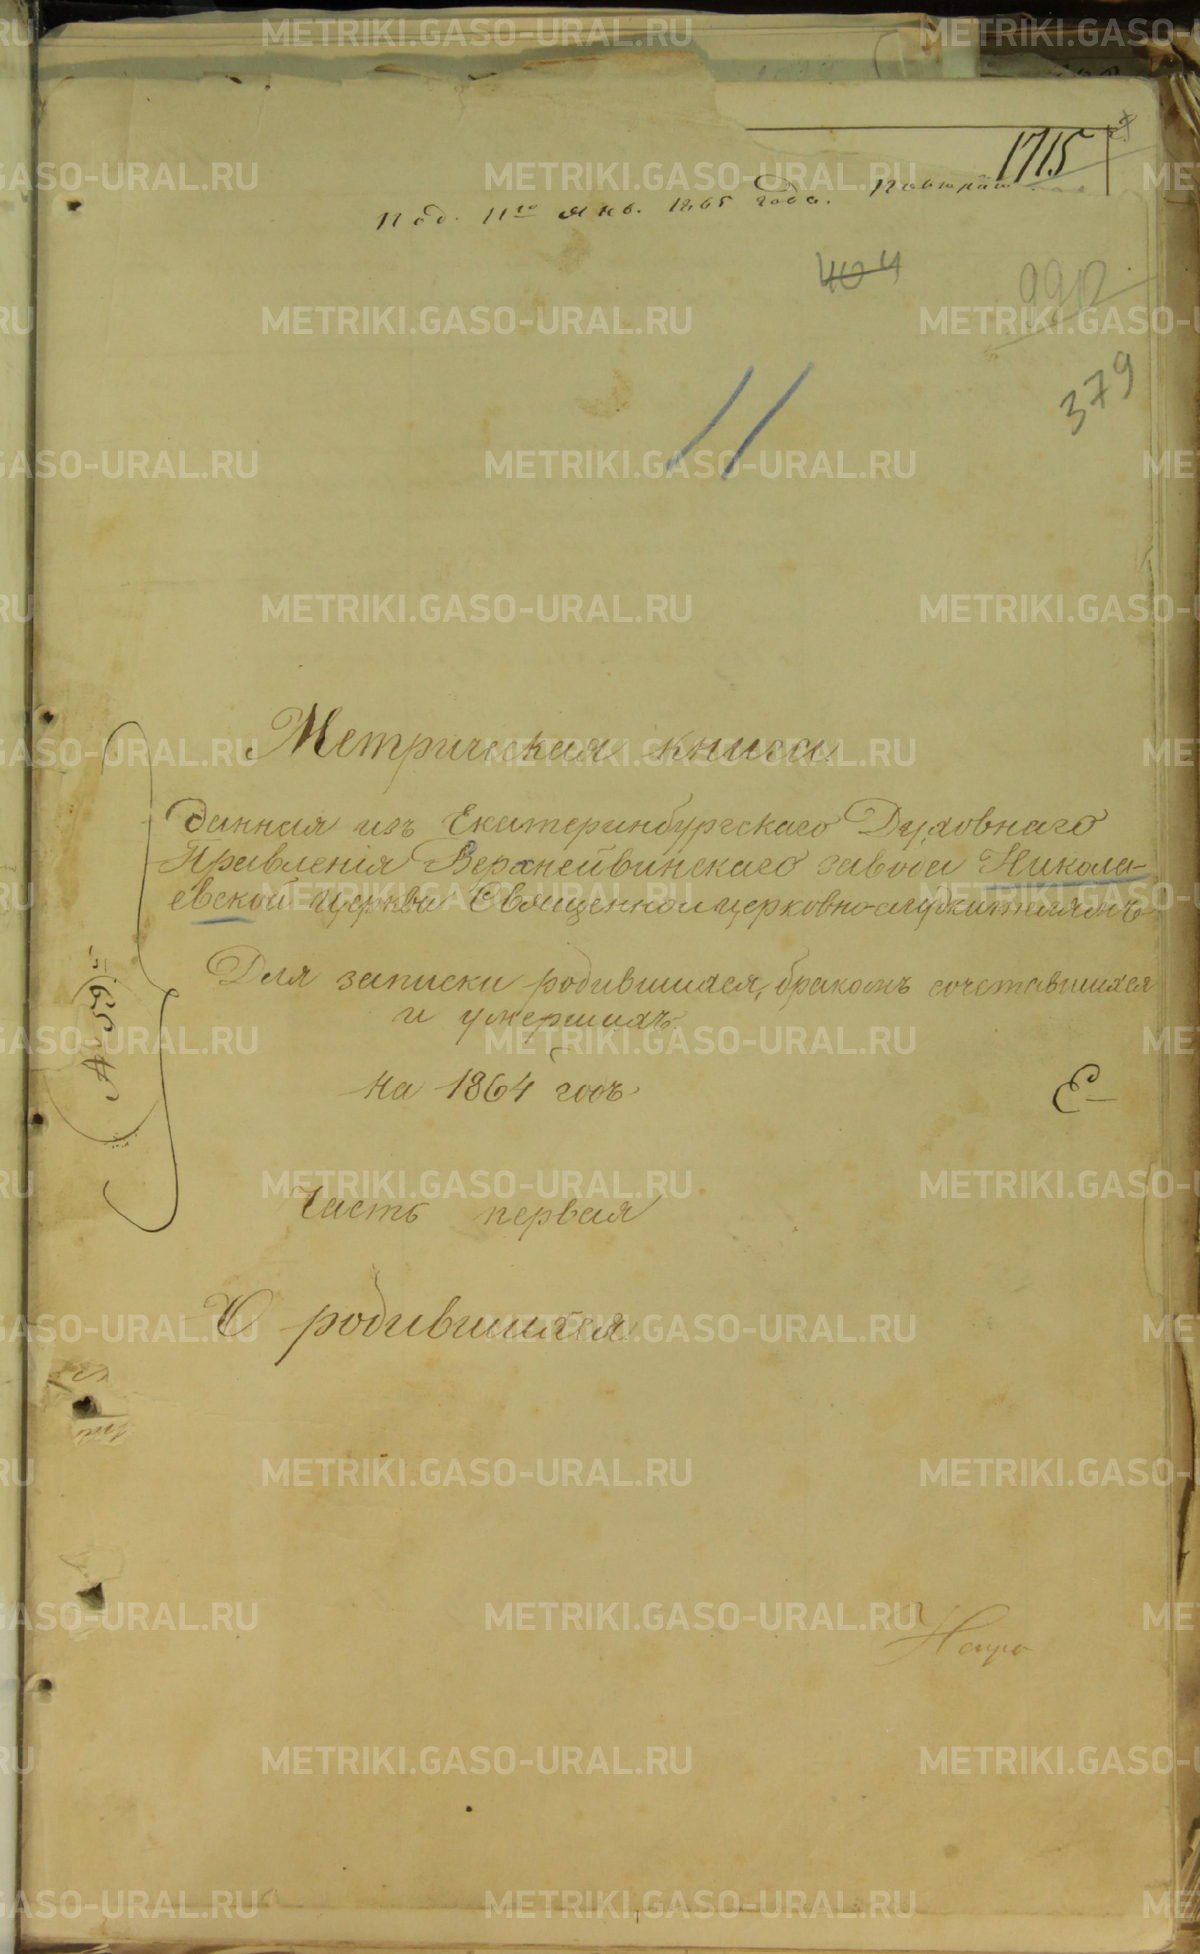 1715
Под. 11го Янв. 1865 года.
404
990
379
11
Метрическая книга
данная изъ Екатеринбургскаго Духовнаго
Правленія Верхнейвинскаго завода Никола-
евской церкви Священноцерковно-служителямъ
Для записки родившихся, бракомъ сочетавшихся
и умершихъ
№ 59й
на 1864 годъ
Часть первая
О родившихся
METRIKI.GASO-URAL.RU